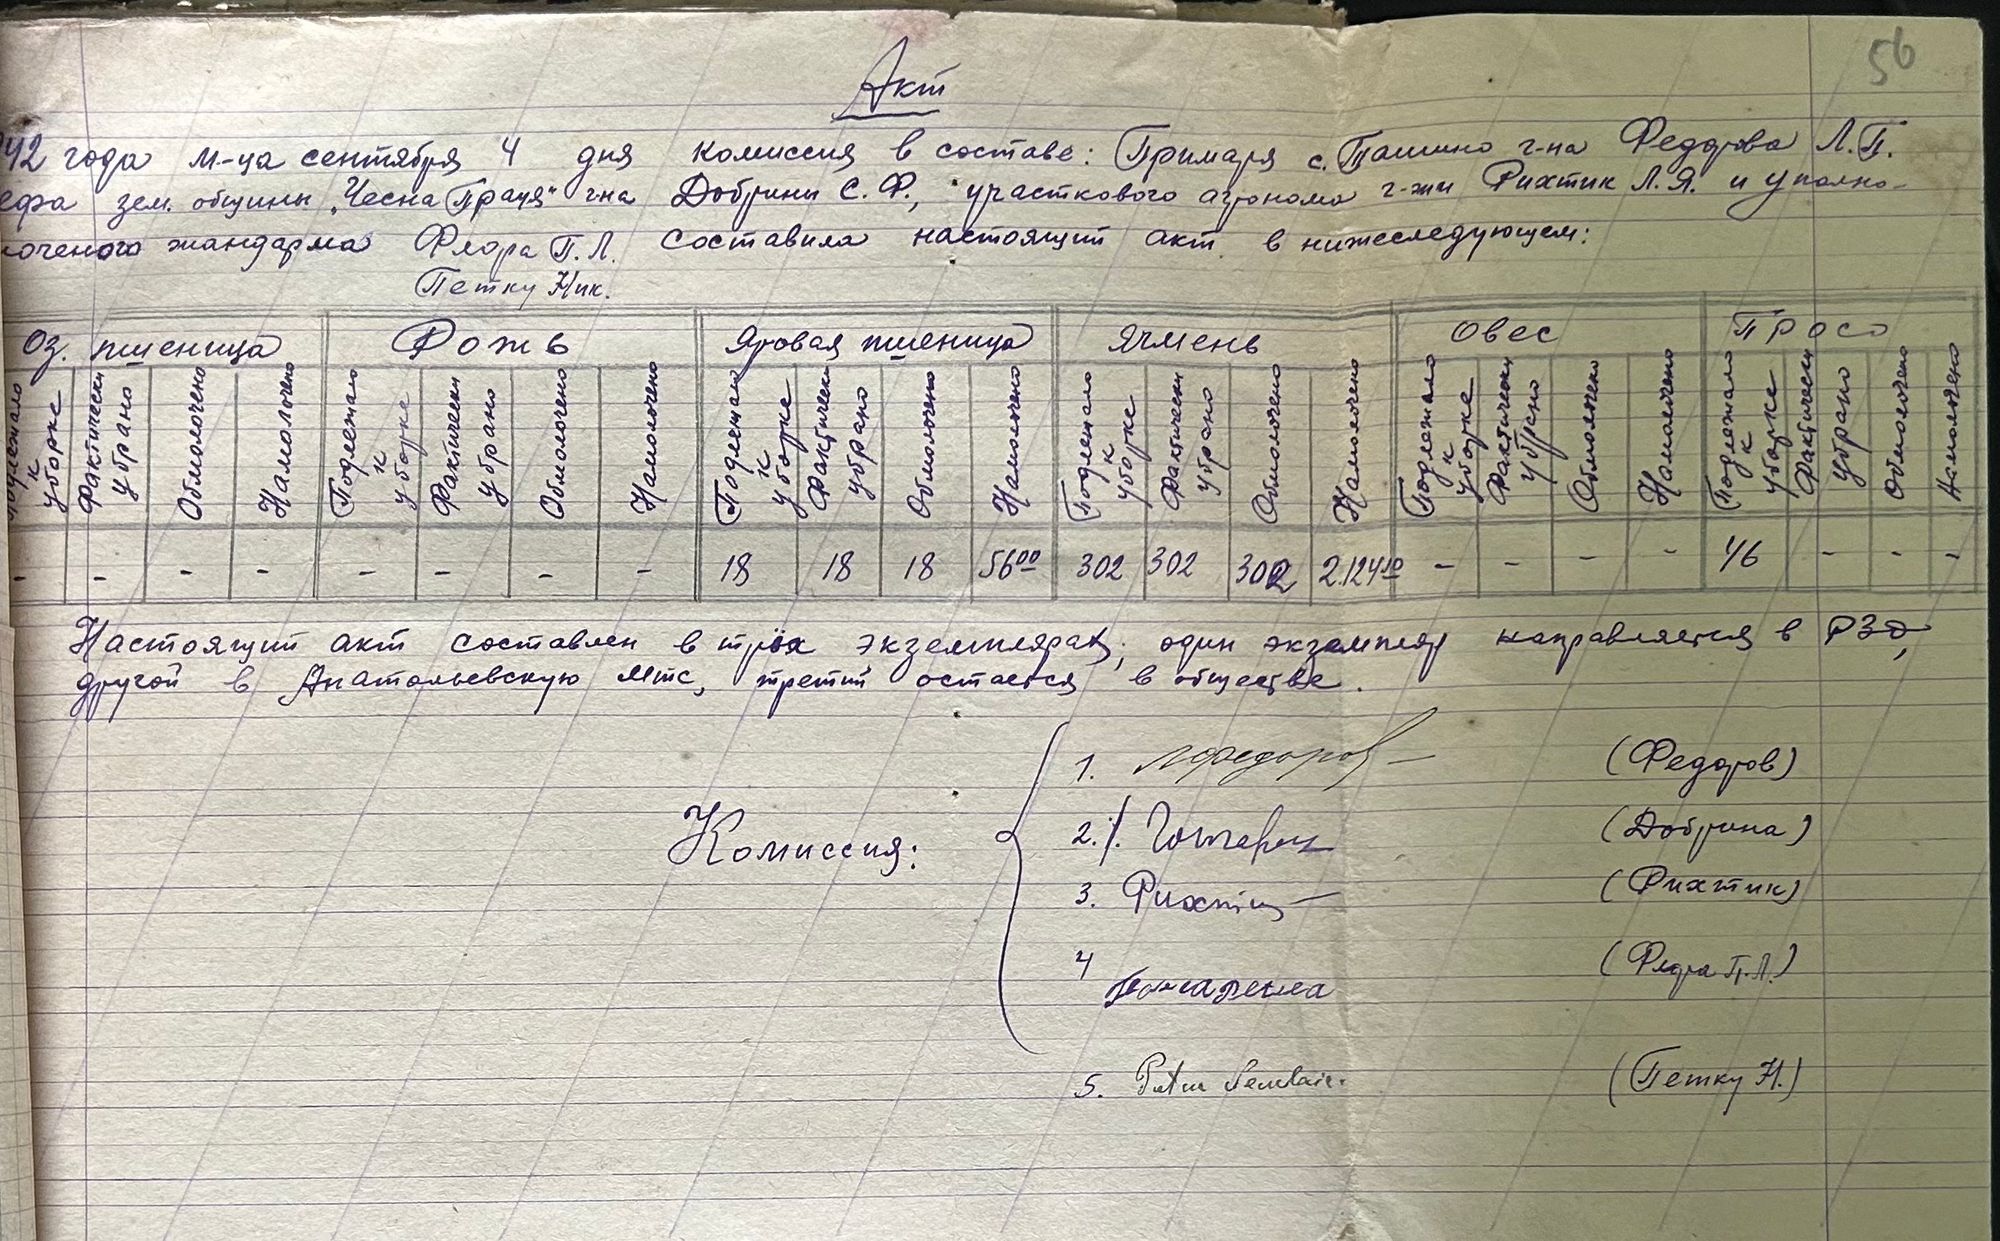 56
Акт
942 года м-ца сентября 4 дня комиссия в составе: Примаря с. Ташино г-на Федорова Л.П.
ефа зем. общины "Чесна Праця" г-на Добрины С. Ф., участкового агронома г-жи Рихтик Л.Я. и уполно-
моченого жандарма Флора П.Л. составила настоящий акт в нижеследующем:
Петку Ник.
Оз. пшеница Рожь Яровая пшеница Ячмень Овес Просо
Подлежало к уборке Фактически убрано Обмолочено Намолочено Подлежало к уборке Фактически убрано Обмолочено Намолочено Подлежало к уборке Фактически убрано Обмолочено Намолочено Подлежало к уборке Фактически убрано Обмолочено Намолочено Подлежало к уборке Фактически убрано Обмолочено Намолочено Подлежало к уборке Фактически убрано Обмолочено Намолочено
- - - - - - - - 18 18 18 56 00 302 302 302 2.124 10 - - - - 46 - - -
Настоящий акт составлен в трёх экземплярах; один экземпляр направляется в РЗО,
другой в Анатольевскую мтс, третий остается в обществе.
Комиссия:
1. Лфедоров (Федоров)
2. (Добрина)
3. Рихтик (Рихтик)
4 (Флора П.Л.)
5. (Петку Н.)